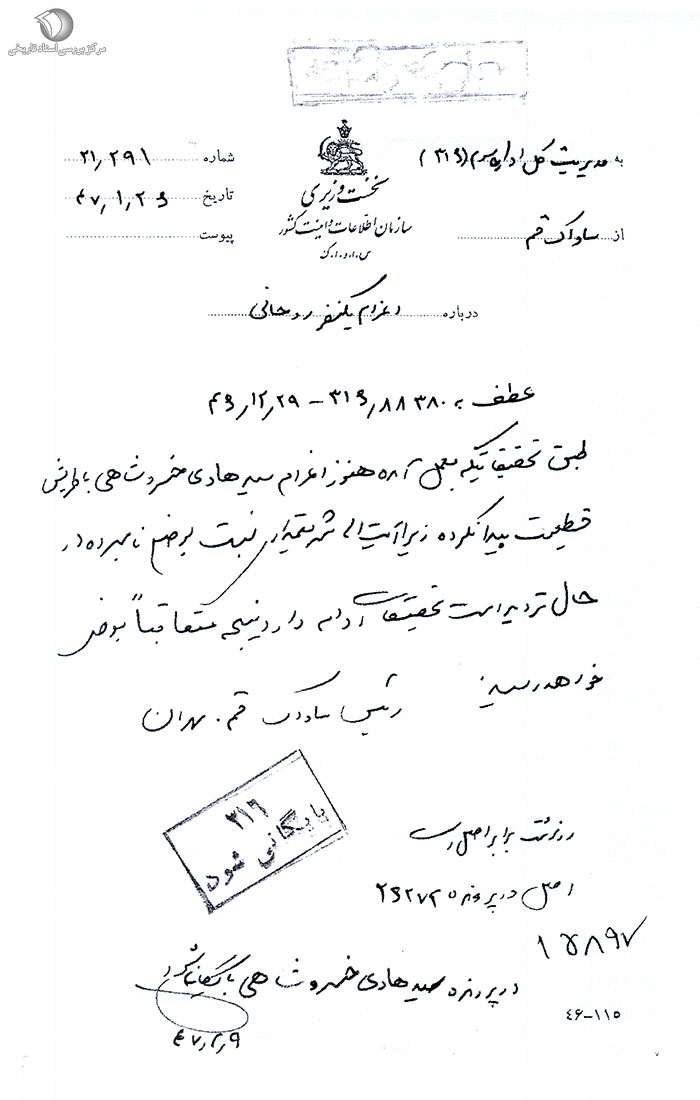 مرکز بررسی اسناد تاریخی
به مدیریت کل اداره سوم (۳۱۶)
شماره ۲۱٫۲۹۱
از ساواک قم
تاریخ ۴۷٫۱٫۲۶
پیوست
نخست وزیری
سازمان اطلاعات و امنیت کشور
س.ا.و.ا.ک
درباره اعزام یکنفر روحانی
عطف به ۳۱۶٫۸۸۳۸۰ – ۴۶٫۱۲٫۲۹
طبق تحقیقاتیکه بعمل آمده هنوز اعزام سید هادی خسروشاهی
قطعیت پیدا نکرده زیرا آیت اله شریعتمداری نسبت بوضع نامبرده در
حال تردید است تحقیقات ادامه دارد نتیجه متعاقباً بعرض
خواهد رسید
رئیس ساواک قم . مهران
۳۱۶
بایگانی شود
رونوشت برابر اصل است
اصل در پرونده ۲۶۲۷۲
۱۵۸۹۷
در پرونده سید هادی خسروشاهی بایگانی شود
۴۷٫۲٫۹
۴۶-۱۱۵